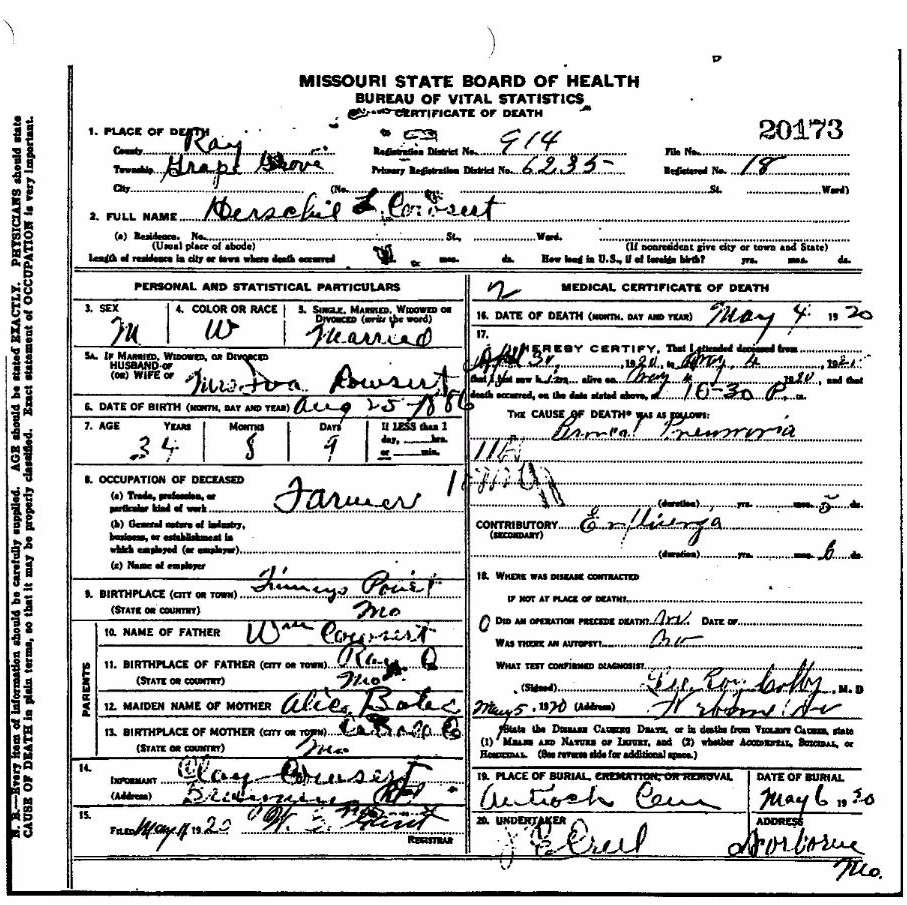 MISSOURI STATE BOARD OF HEALTH
BUREAU OF VITAL STATISTICS
CERTIFICATE OF DEATH
20173
1. PLACE OF DEATH
County Ray Registration District No. 914 File No.
Township Grape Grove Primary Registration District No. 6235 Registered No. 18
City (No. St. Ward)
2. FULL NAME Herschil L. Cowsert
(a) Residence. No. St., Ward.
(Usual place of abode) (If nonresident give city or town and State)
Length of residence in city or town where death occurred mos. ds. How long in U.S., if of foreign birth? yrs. mos. ds.
PERSONAL AND STATISTICAL PARTICULARS
3. SEX 4. COLOR OR RACE 5. SINGLE, MARRIED, WIDOWED OR DIVORCED (write the word)
M W Married
5A. IF MARRIED, WIDOWED, OR DIVORCED
HUSBAND OF
(OR) WIFE OF Mrs Iva Cowsert
6. DATE OF BIRTH (MONTH, DAY AND YEAR) Aug 25 1886
7. AGE YEARS MONTHS DAYS If LESS than 1 day, hrs. or min.
34 8 9
8. OCCUPATION OF DECEASED
(a) Trade, profession, or particular kind of work Farmer
(b) General nature of industry, business, or establishment in which employed (or employer)
(c) Name of employer
9. BIRTHPLACE (CITY OR TOWN) Point
(STATE OR COUNTRY) Mo
PARENTS
10. NAME OF FATHER Wm Cowsert
11. BIRTHPLACE OF FATHER (CITY OR TOWN) Ray
(STATE OR COUNTRY) Mo
12. MAIDEN NAME OF MOTHER Alice Bates
13. BIRTHPLACE OF MOTHER (CITY OR TOWN)
(STATE OR COUNTRY) Mo
14. INFORMANT Clay Cowsert
(Address)
15. FILED May 11 1920
REGISTRAR
2 MEDICAL CERTIFICATE OF DEATH
16. DATE OF DEATH (MONTH, DAY AND YEAR) May 4 1920
17. I HEREBY CERTIFY, That I attended deceased from
April 30, 1920, to May 4, 192
that I last saw him alive on May 1920, and that
death occurred, on the date stated above, at 10-30 P. m.
THE CAUSE OF DEATH* WAS AS FOLLOWS:
Pneumonia
(duration) yrs. mos. 5 ds.
CONTRIBUTORY
(SECONDARY)
(duration) yrs. mos. 6 ds.
18. WHERE WAS DISEASE CONTRACTED
IF NOT AT PLACE OF DEATH?
DID AN OPERATION PRECEDE DEATH? No. DATE OF
WAS THERE AN AUTOPSY? No
WHAT TEST CONFIRMED DIAGNOSIS?
(Signed) Lee Roy, M. D
May 5, 1920 (Address)
*State the DISEASE CAUSING DEATH, or in deaths from VIOLENT CAUSES, state
(1) MEANS AND NATURE OF INJURY, and (2) whether ACCIDENTAL, SUICIDAL, or
HOMICIDAL. (See reverse side for additional space.)
19. PLACE OF BURIAL, CREMATION, OR REMOVAL DATE OF BURIAL
Antioch Cem May 6 1920
20. UNDERTAKER ADDRESS
Norborne
Mo.
N. B.—Every item of information should be carefully supplied. AGE should be stated EXACTLY. PHYSICIANS should state
CAUSE OF DEATH in plain terms, so that it may be properly classified. Exact statement of OCCUPATION is very important.